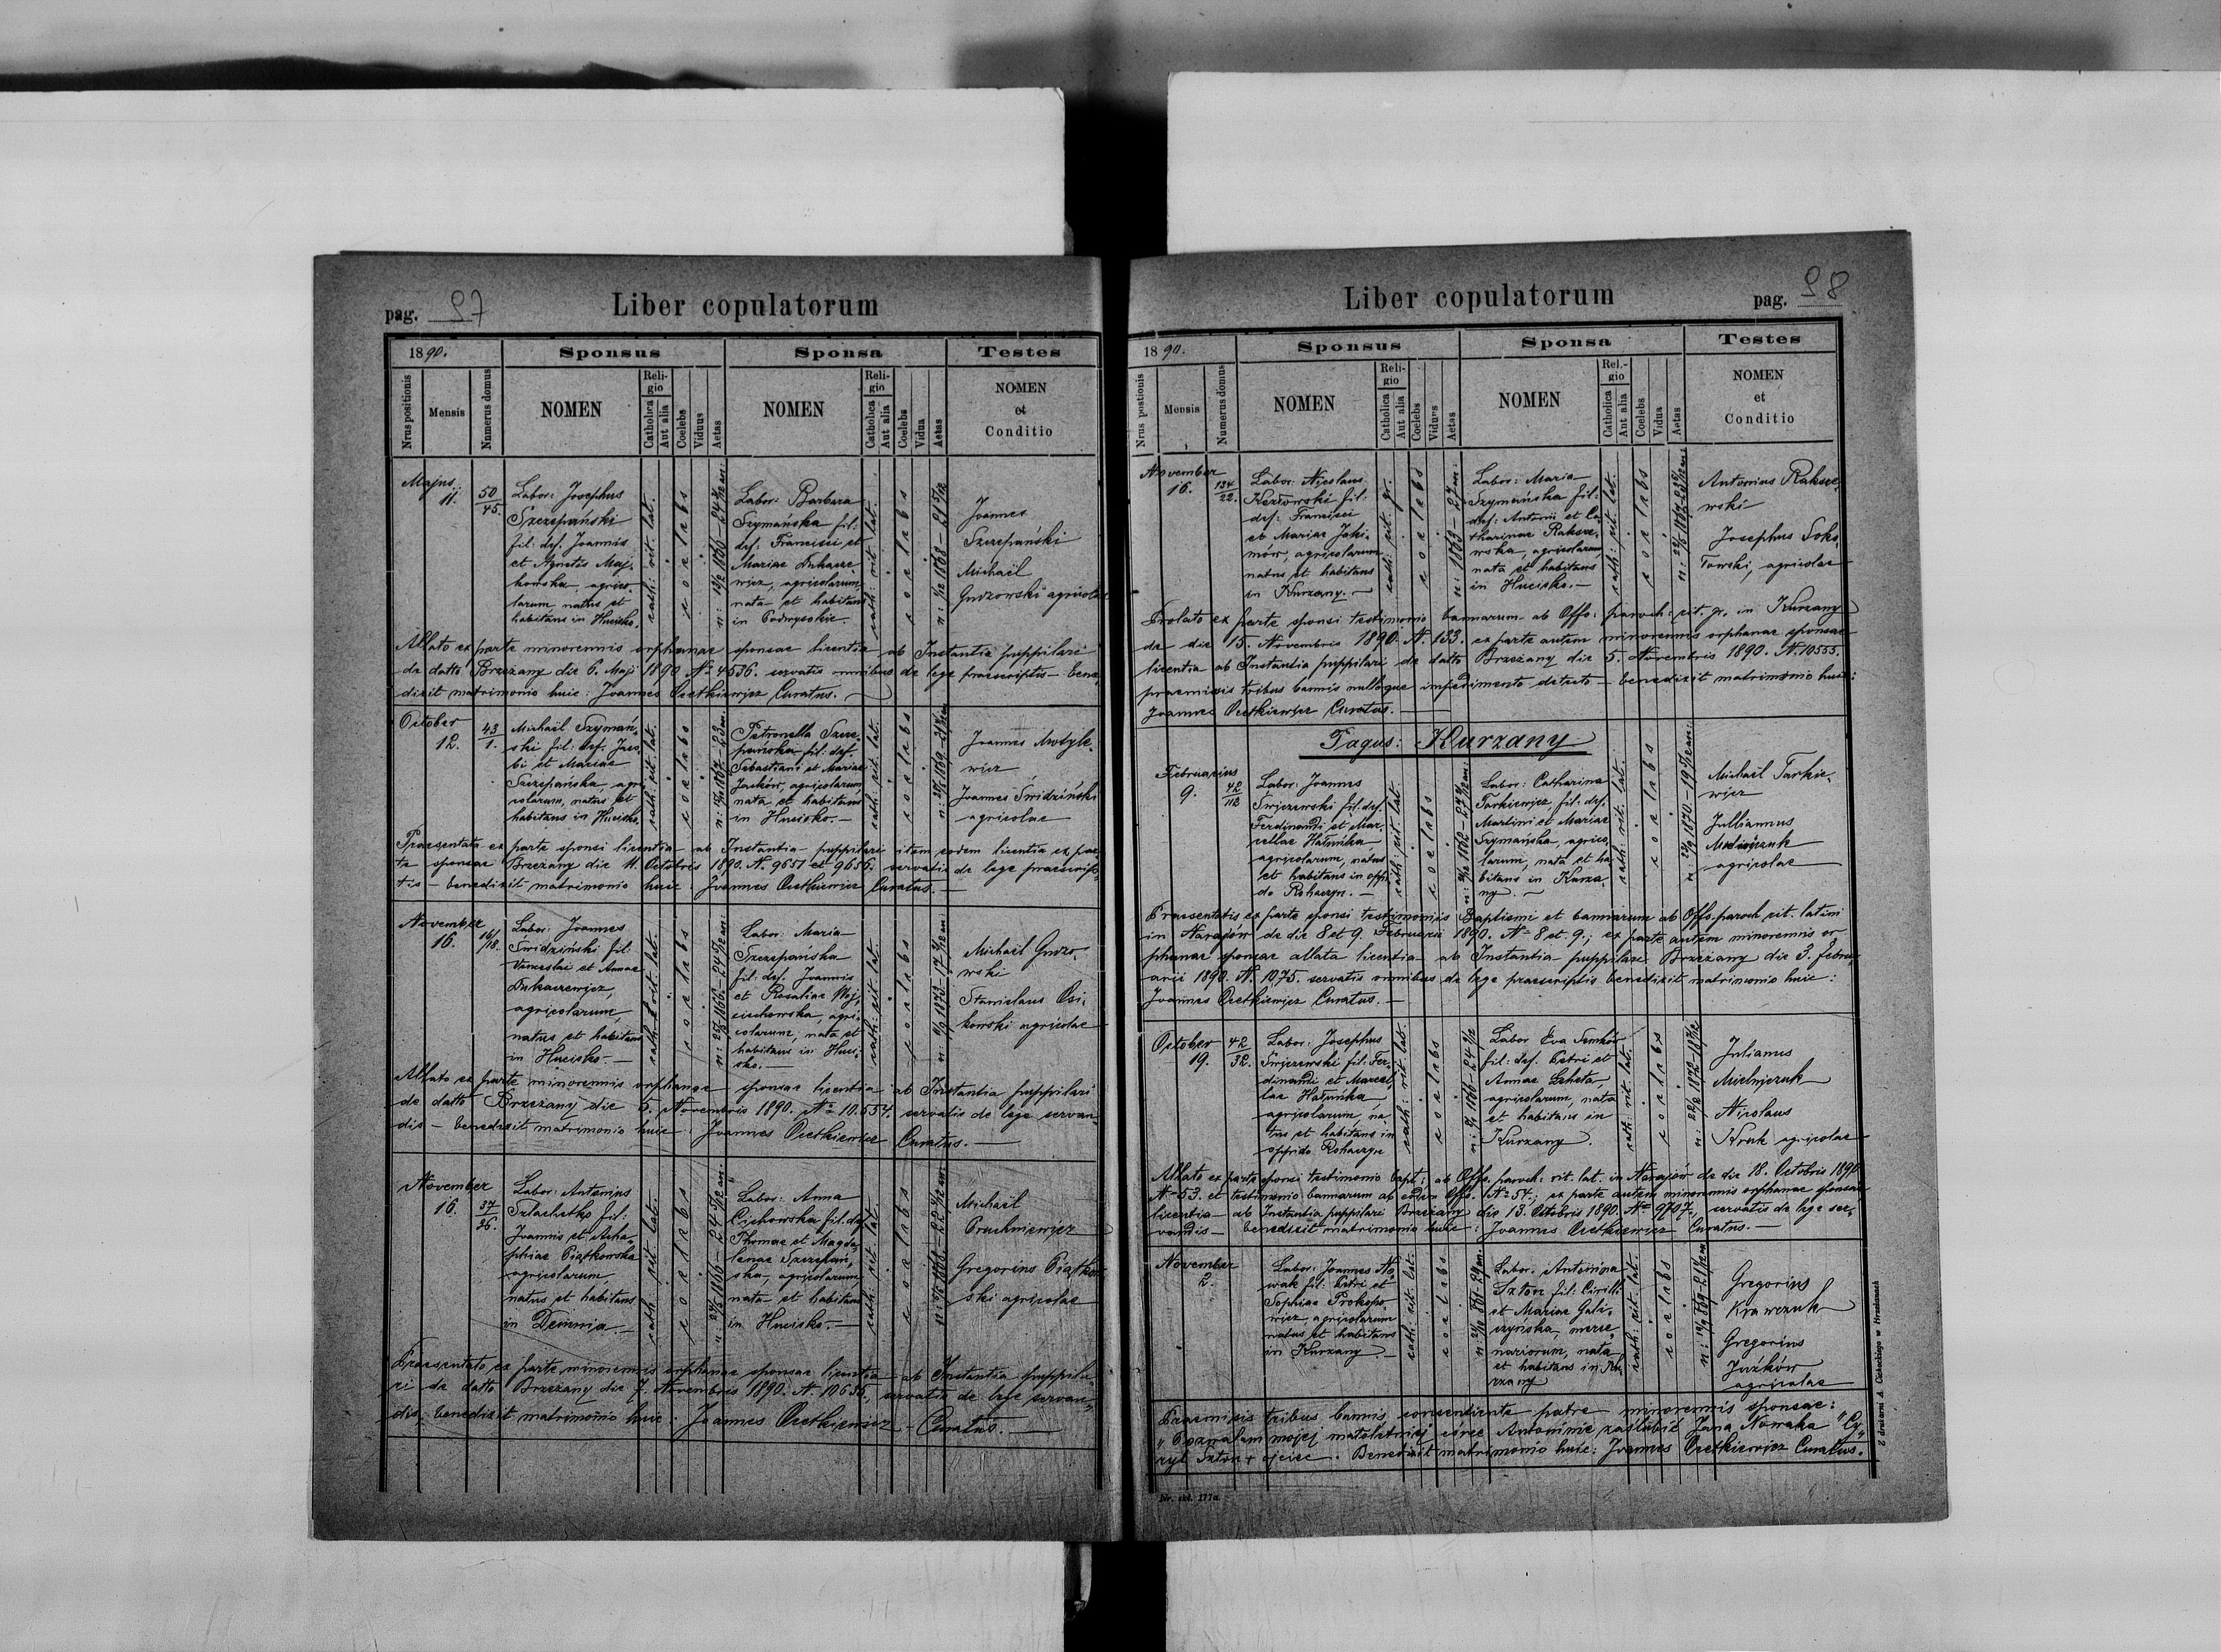 pag. 97
Liber copulatorum
1890.
Sponsus
Sponsa
Testes
Nrus positionis
Mensis
Numerus domus
NOMEN
Religio
Catholica
Aut alia
Coelebs
Viduus
Aetas
NOMEN
Religio
Catholica
Aut alia
Coelebs
Vidua
Aetas
NOMEN
et
Conditio
Majus
11.
50/45.
Labor: Josephus
Szczepański
fil: def. Joannis
et Agnetis Maj-
kowska, agrico-
larum, natus et
habitans in Hucisko.
cath: rit. lat.
coelebs
Labor: Barbara
Szymańska fil:
def: Francisci et
Mariae Łukasze-
wicz, agricolarum
nata et habitans
in Podwysokie.
cath: rit. lat.
coelebs
Joannes
Szczepański
Michaël
Gudzowski agricolae
Allato ex parte minorennis orphanae sponsae licentia ab Instantia puppilari
de datto Brzeżany die 6. Maji 1890 No 4536. servatis omnibus de lege praescriptis – bene-
dixit matrimonio huic: Joannes Oretkiewicz Curatus.
October
12.
43/1.
Michaël Szymań-
ski fil: def. Jaco-
bi et Mariae
Szczepańska, agri-
colarum, natus et
habitans in Hucisko.
cath: rit. lat.
coelebs
Petronella Szcze-
pańska fil. def.
Sebastiani et Mariae
Jacków, agricolarum
nata et habitans
in Hucisko. –
cath: rit. lat.
coelebs
Joannes Motyle-
wicz
Joannes Świdziński
agricolae
Praesentata ex parte sponsi licentia ab Instantia puppilari item eodem licentia ex par-
te sponsae Brzeżany die 11. Octobris 1890. No 9651 et 9656. servatis de lege praescrip-
tis – benedixit matrimonio huic: Joannes Oretkiewicz Curatus. –
November
16.
16/18.
Labor: Joannes
Świdziński fil:
Venceslai et Annae
Łukaszewicz,
agricolarum,
natus et habitans
in Hucisko. –
cath: rit. lat.
coelebs
Labor: Maria
Szczepańska
fil: def. Joannis
et Rosaliae Woj-
ciechowska, agri-
colarum, nata et
habitans in Huci-
sko. –
cath: rit. lat.
coelebs
Michaël Gudzo-
wski
Stanislaus Osi-
kowski agricolae
Allato ex parte minorennis orphanae sponsae licentia ab Instantia puppilari
de datto Brzeżany die 5. Novembris 1890. No 10.554. servatis de lege servan-
dis – benedixit matrimonio huic: Joannes Oretkiewicz Curatus. –
November
16.
37/26.
Labor: Antonius
Szlachetko fil:
Joannis et
Piątkowska
agricolarum
natus et habitans
in Demnia. –
cath: rit. lat.
coelebs
Labor: Anna
Cichowska fil. def
Thomae et Magda-
lenae Szczepań-
ska, agricolarum
nata et habitans
in Hucisko. –
cath: rit. lat.
coelebs
Michaël
Pruchniewicz
Gregorius Piątkow-
ski agricolae
Praesentato ex parte minorennis orphanae sponsae licentia ab Instantia puppila-
ri de datto Brzeżany die 7. Novembris 1890. N. 10636, servatis de lege servan-
dis, benedixit matrimonio huic: Joannes Oretkiewicz – Curatus. –
Liber copulatorum
pag. 98
1890.
Sponsus
Sponsa
Testes
Nrus postionis
Mensis
Numerus domus
NOMEN
Religio
Catholica
Aut alia
Coelebs
Viduus
Aetas
NOMEN
Religio
Catholica
Aut alia
Coelebs
Vidua
Aetas
NOMEN
et
Conditio
November
16.
134/22.
Labor: Nicolaus
fil:
def: Francisci
et Mariae Joki-
mów, agricolarum
natus et habitans
in Kurzany. –
cath: rit. gr.
coelebs
n: 1863 – 27 an:
Labor: Maria
Szymańska fil:
def: Antonii et Ca-
tharinae Raksze-
wska, agricolarum,
nata et habitans
in Hucisko. –
cath: rit. lat.
coelebs
Antonius Raksze-
wski
Josephus Soko-
łowski, agricolae
Prolato ex parte sponsi testimonio bannorum ab Offo: paroch: rit. gr. in Kurzany
de die 15. Novembris 1890. N. 133. ex parte autem minorennis orphanae sponsae
licentia ab Instantia puppilari de datto Brzeżany die 5. Novembris 1890. N. 10555.
praemissis tribus bannis nulloque impedimento detecto – benedixit matrimonio huic:
Joannes Oretkiewicz Curatus.
Pagus: Kurzany
Februarius
9.
42/113
Labor: Joannes
Świżewski fil: def.
Ferdinandi et Mar-
cellae Hałuńka
agricolarum, natus
et habitans in oppi-
do Rohaczyn. –
cath: rit. lat.
coelebs
Labor: Catharina
Tarkiewicz, fil: def.
Martini et Mariae
Szymańska, agrico-
larum, nata et ha-
bitans in Kurza-
ny. –
cath: rit. lat.
coelebs
Michaël Tarkie-
wicz
Julliannus
Mielniczuk
agricolae
Praesentatis ex parte sponsi testimoniis Baptismi et bannorum ab Offo. paroch rit. latini
in Narajów de die 8 et 9. Februarii 1890. No 8 et 9.; ex parte autem minorennis or-
phanae sponsae allata licentia ab Instantia puppilari Brzeżany die 3. Febru-
arii 1890. N. 1075. servatis omnibus de lege praescriptis benedixit matrimonio huic:
Joannes Oretkiewicz Curatus. –
October
19.
42/32.
Labor: Josephus
Świżewski fil: Fer-
dinandi et Marcel-
lae Hałuńka
agricolarum, na-
tus et habitans in
oppido Rohaczyn
cath: rit. lat.
coelebs
Labor Eva Senków
fil: def. Petri et
Annae
agricolarum, nata
et habitans in
Kurzany.
cath: rit. lat.
coelebs
Julianus
Mielniczuk
Nicolaus
Kruk agricolae
Allato ex parte sponsi testimonio bapt: ab Offo. paroch: rit. lat. in Narajów de die 18. Octobris 1890
No 53. et testimonio bannorum ab eodem Offo. No 54.; ex parte autem minorennis orphanae sponsae
licentia ab Instantia puppilari Brzeżany die 13. Octobris 1890. No 9707., servatis de lege ser-
vandis – benedixit matrimonio huic: Joannes Oretkiewicz Curatus. –
November
2.
Labor: Joannes No-
wak fil: Petri et
Sophiae Prokopo-
wicz, agricolarum
natus et habitans
in Kurzany –
cath: rit. lat.
coelebs
Labor. Antonina
Szton fil: Cirilli
et Mariae Gali-
czyńska, merce-
nariorum, nata
et habitans in Ku-
rzany
cath: rit. lat.
coelebs
Gregorius
Krawczuk
Gregorius
Juzków
agricolae
Praemissis tribus bannis, consentiente patre minorennis sponsae:
„Pozwalam mojej małoletniej córce Antoninie zaślubić Jana Nowaka" Cy-
ryl Szton + ojciec. Benedixit matrimonio huic: Joannes Oretkiewicz Curatus.
Nr. skł. 177a.
Z drukarni A. Cichockiego w Brzeżanach